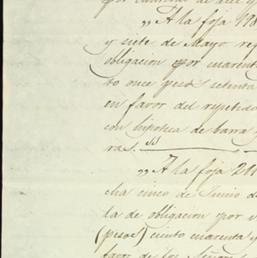 por
„ A la foja 19
y siete de Mayo re
obligacion por cuarent
to once pesos setenta
en favor del repetido
con hipoteca de barra y
ras.
„ A la foja 20
cha cinco de Junio d
la de obligacion por
(pesos) ciento cuarenta y
favor de los Señores